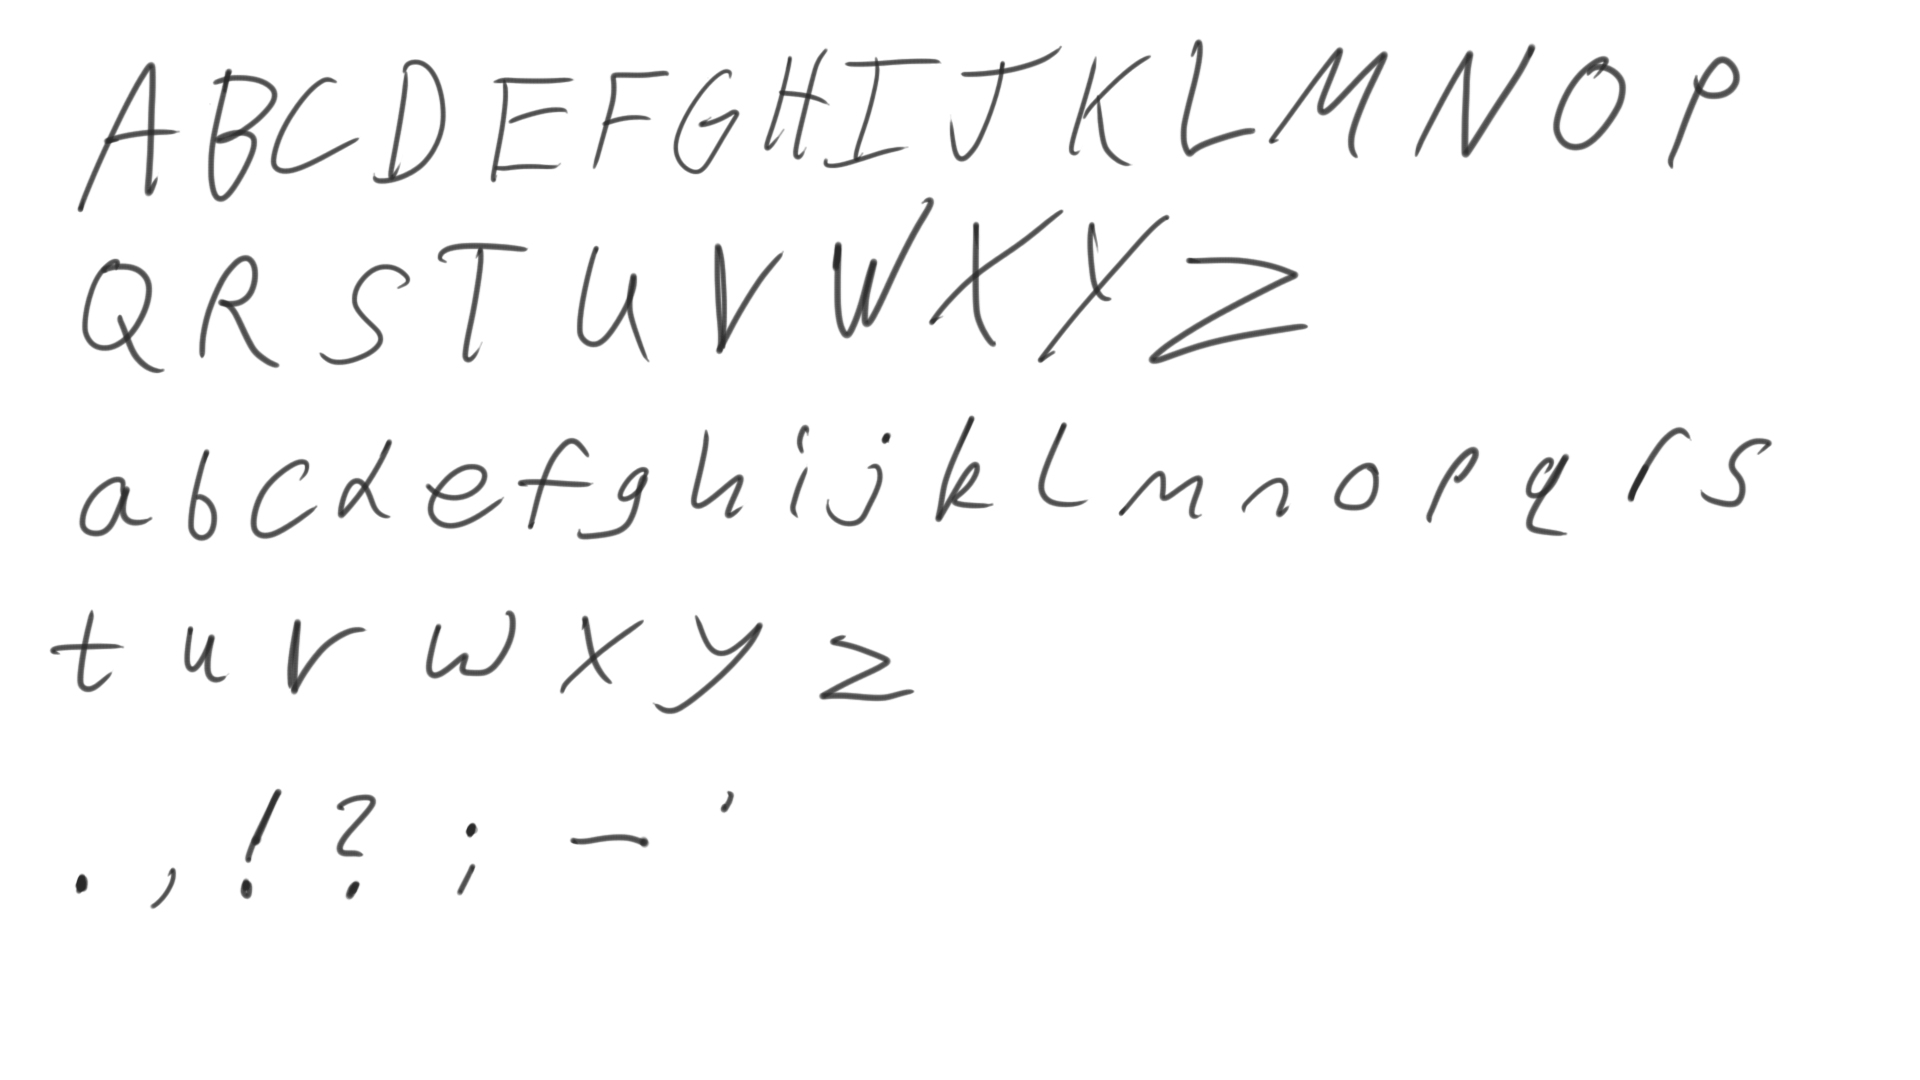 A B C D E F G H I J K L M N O P
Q R S T U V W X Y Z
a b c d e f g h i j k l m n o p q r s
t u v w x y z
. , ! ? ; - '